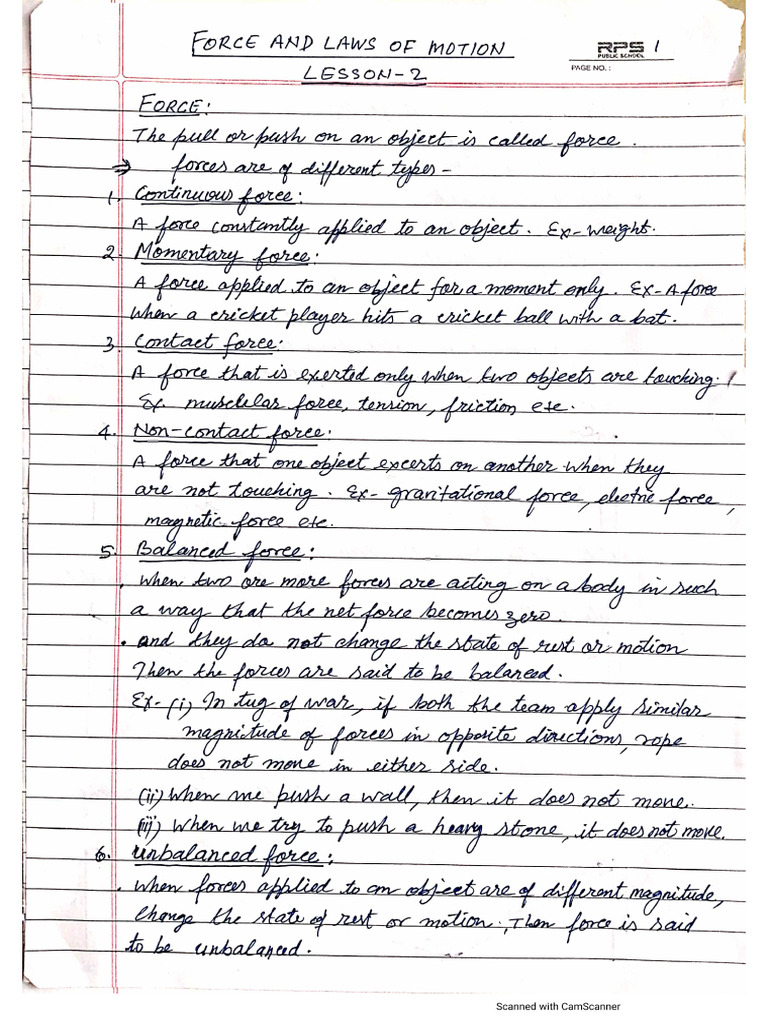 FORCE AND LAWS OF MOTION
RPS 1
PUBLIC SCHOOL
PAGE NO.:
LESSON-2
FORCE:
The pull or push on an object is called force.
⇒ forces are of different types-
1. Continuous force:
A force constantly applied to an object. Ex-weight.
2. Momentary force:
A force applied to an object for a moment only. Ex-A force
when a cricket player hits a cricket ball with a bat.
3. Contact force:
A force that is exerted only when two objects are touching.
Ex. musclular force, tension, friction etc.
4. Non-contact force:
A force that one object excerts on another when they
are not touching. Ex- gravitational force, electric force,
magnetic force etc.
5. Balanced force:
. when two ore more forces are acting on a body in such
a way that the net force becomes zero.
. and they do not change the state of rest or motion
Then the forces are said to be balanced.
Ex-(i) In tug of war, if both the team apply similar
magnitude of forces in opposite directions, rope
does not move in either side.
(ii) When we push a wall, then it does not move.
(iii) When we try to push a heavy stone, it does not move.
6. Unbalanced force:
. when forces applied to an object are of different magnitude,
change the state of rest or motion., Then force is said
to be unbalanced.
Scanned with CamScanner